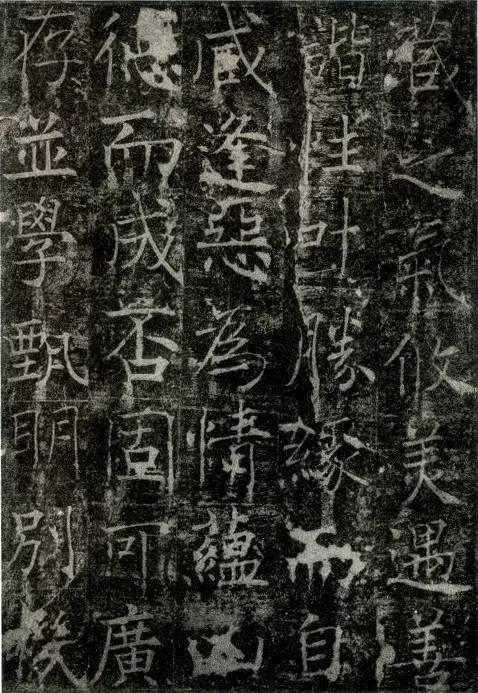 藏之氣攸美遇善
諧性叶勝緣而自
臧逢惡為情蘊凶
德而成否固可廣
存並學甄明別機